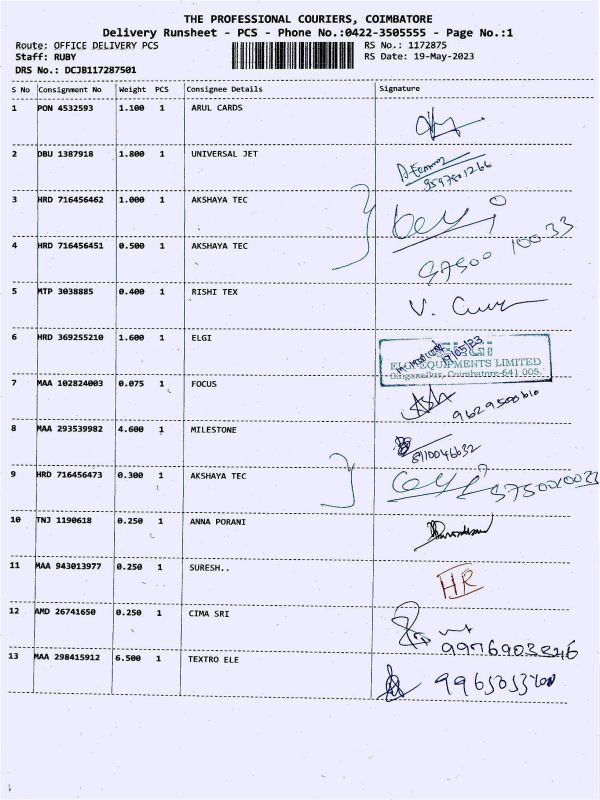 THE PROFESSIONAL COURIERS, COIMBATORE
Delivery Runsheet - PCS - Phone No.:0422-3505555 - Page No.:1
Route: OFFICE DELIVERY PCS
RS No.: 1172875
Staff: RUBY
RS Date: 19-May-2023
DRS No.: DCJB117287501
S No Consignment No Weight PCS Consignee Details Signature
1 PON 4532593 1.100 1 ARUL CARDS
2 DBU 1387918 1.800 1 UNIVERSAL JET
9597501266
3 HRD 716456462 1.000 1 AKSHAYA TEC
4 HRD 716456451 0.500 1 AKSHAYA TEC
97500 10033
5 MTP 3038885 0.400 1 RISHI TEX
V.
6 HRD 369255210 1.600 1 ELGI
ELGI
19/05/23
ELGI EQUIPMENTS LIMITED
Singanallur, Coimbatore-641 005.
7 MAA 102824003 0.075 1 FOCUS
9629500610
8 MAA 293539982 4.600 1 MILESTONE
8910046632
9 HRD 716456473 0.300 1 AKSHAYA TEC
10 TNJ 1190618 0.250 1 ANNA PORANI
11 MAA 943013977 0.250 1 SURESH..
HR
12 AMD 26741650 0.250 1 CIMA SRI
9976903846
13 MAA 298415912 6.500 1 TEXTRO ELE